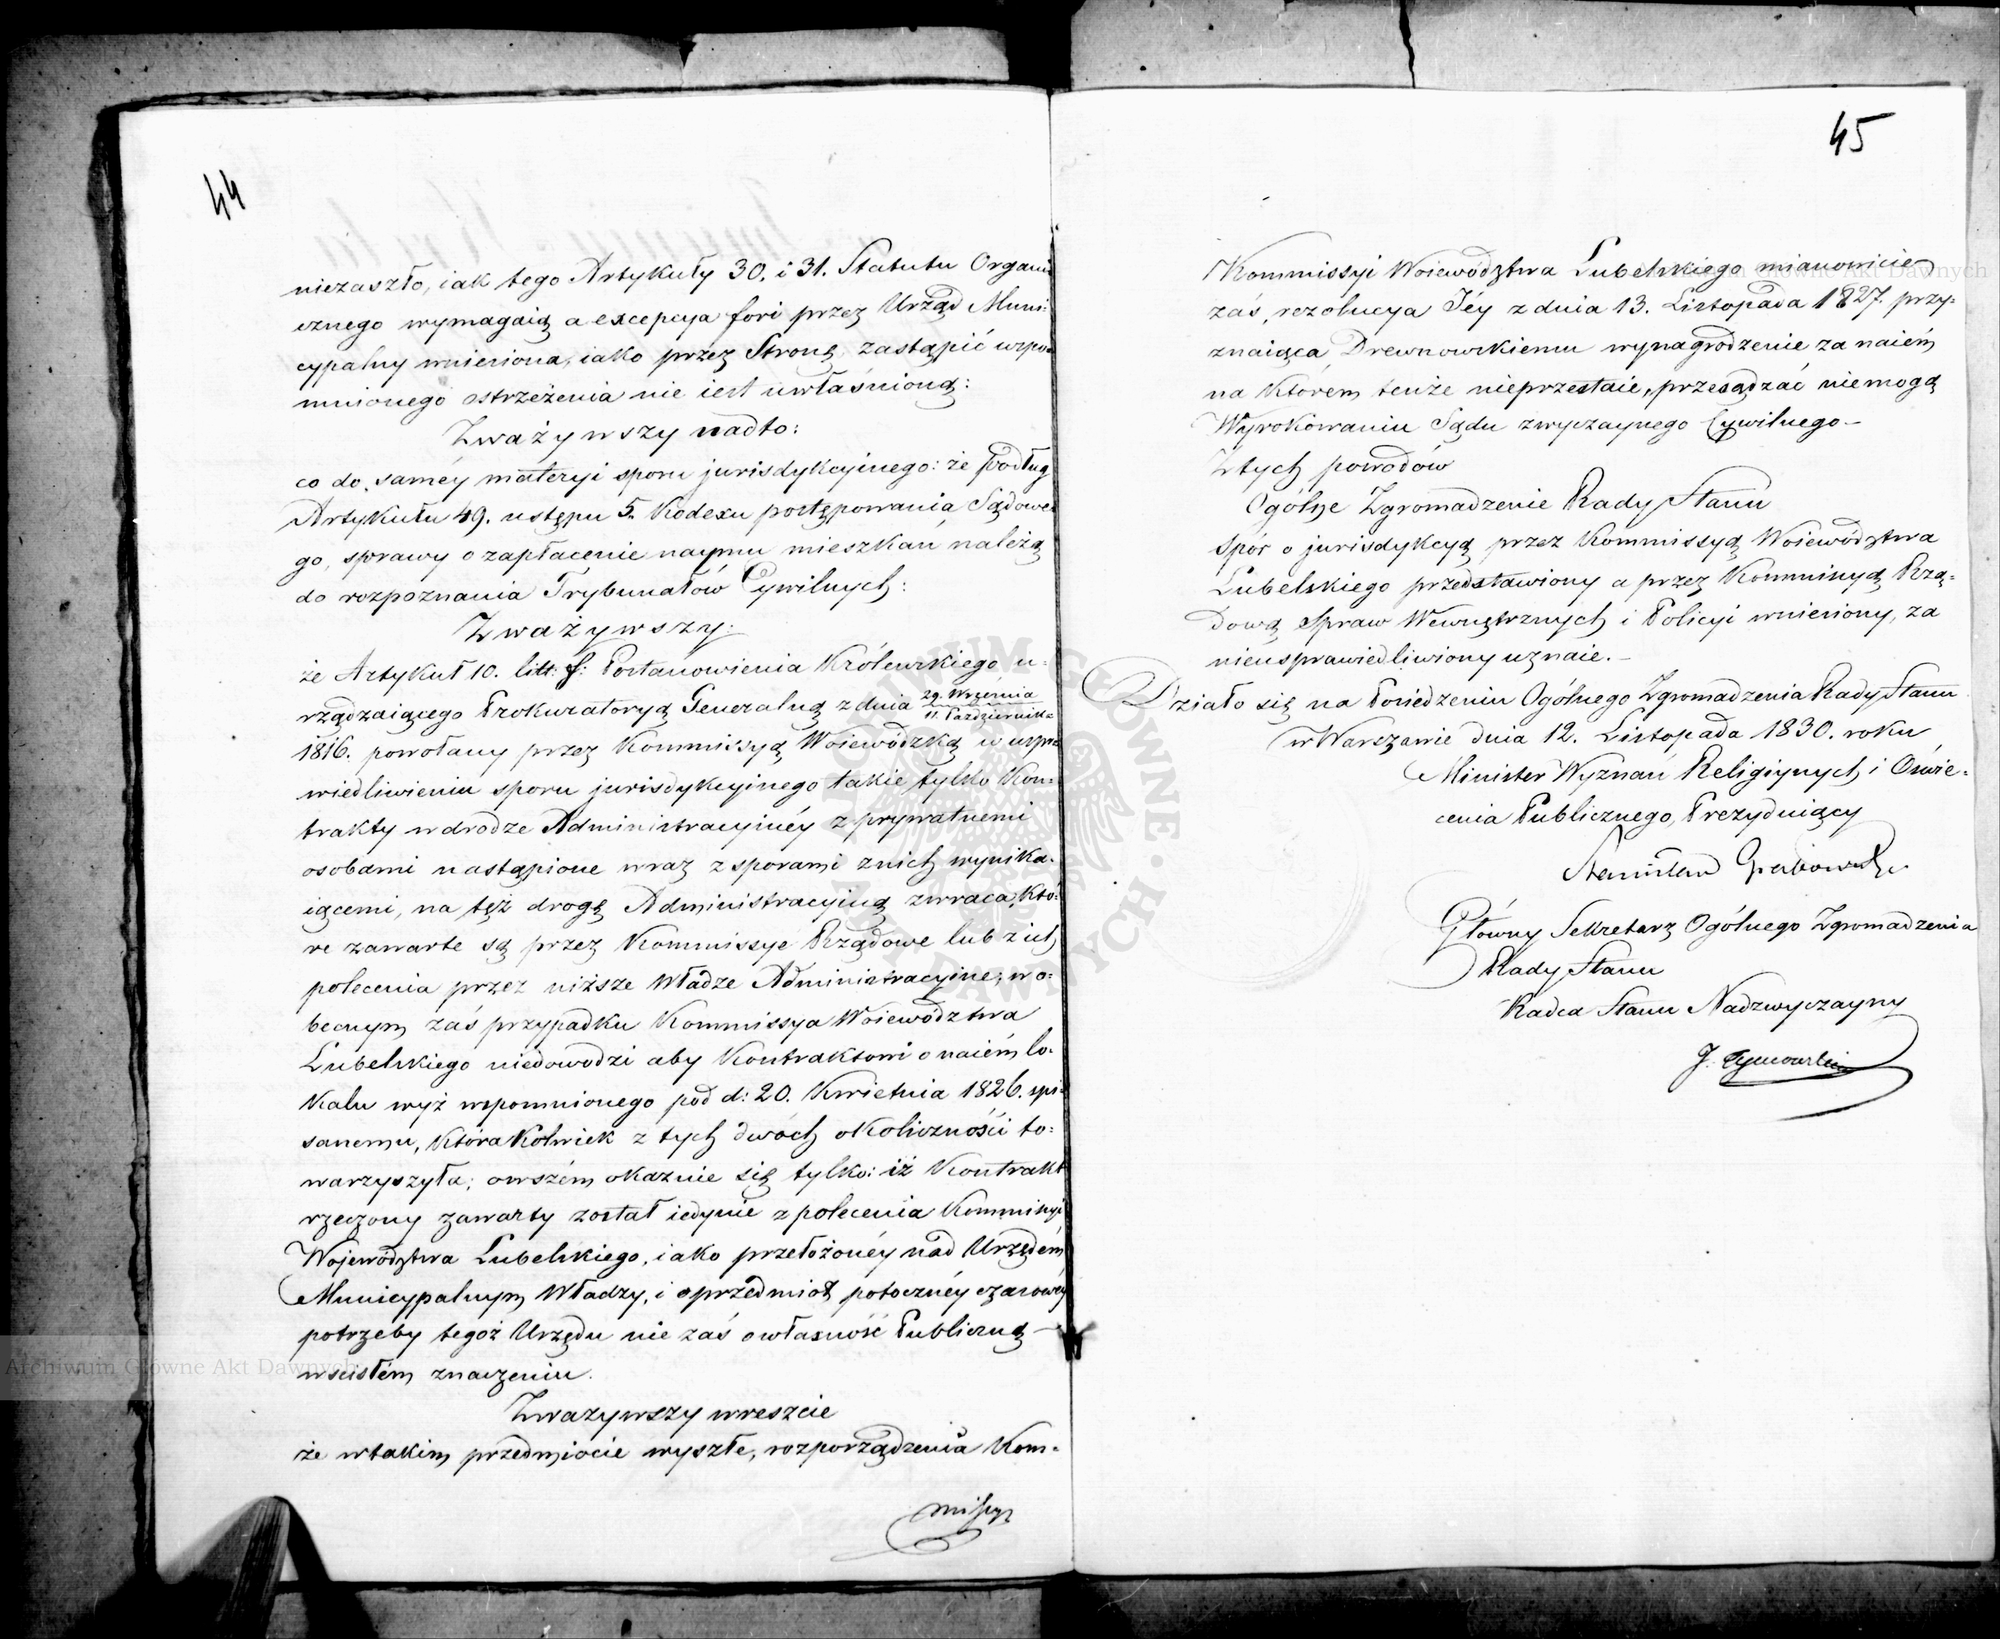 44
niezaszło, iak tego Artykuły 30. i 31. Statutu Organi
cznego wymagaią a excepcya fori przez Urząd Muni:
cypalny wniesiona, iako przez Stronę, zastąpić wspo
mnionego ostrzeżenia nie iest uwłaśnioną:
Zważywszy nadto:
co do samey materyi sporu jurisdykcyinego: że podług
Artykułu 49. ustępu 5. Kodexu postępowania Sądowe
go, sprawy o zapłacenie naymu mieszkań należą
do rozpoznania Trybunałów Cywilnych:
Zważywszy:
że Artykuł 10. litt: f: Postanowienia Królewskiego u-
rządzaiącego Prokuratoryą Generalną z dnia 29. Września / 11. Październik
1816. powołany przez Kommissyą Woiewódzką w uspra
wiedliwieniu sporu jurisdykcyinego takie tylko Kon-
trakty w drodze Administracyinéy z prywatnemi
osobami nastąpione wraz z sporami z nich wynika-
iącemi, na też drogę Administracyiną zwraca, któ-
re zawarte są przez Kommissye Rządowe lub z ich
polecenia przez niższe Władze Administracyine; w o-
becnym zaś przypadku Kommissya Woiewództwa
Lubelskiego niedowodzi aby Kontraktowi o naiém lo-
kalu wyż wspomnionego pod d: 20. Kwietnia 1826. spi-
sanemu, którakolwiek z tych dwóch okoliczności to-
warzyszyła; owszém okazuie się tylko: iż Kontrakt
rzeczony zawarty został iedynie z polecenia Kommissyi
Województwa Lubelskiego, iako przełożonéy nad Urzędém
Municypalnym Władzy, i o przedmiot potocznéy czasowéy
potrzeby tegoż Urzędu nie zaś o własność Publiczną
w scisłém znaczeniu.
Zważywszy wreszcie
że w takim przedmiocie wyszłe, rozporządzenia Kom-
missyi
45
Kommissyi Woiewództwa Lubelskiego mianowicie
zaś, rezolucya Jéy z dnia 13. Listopada 1827. przy-
znaiąca Drewnowskiemu wynagrodzenie za naiém
na którém tenże nieprzestaie, przesądzać niemogą
Wyrokowaniu Sądu zwyczaynego Cywilnego—
Z tych powodów
Ogólne Zgromadzenie Rady Stanu
spór o jurisdykcyą przez Kommissyą Woiewództwa
Lubelskiego przedstawiony a przez Kommissyą Rzą-
dową Spraw Wewnętrznych i Policyi wniesiony, za
nieusprawiedliwiony uznaie.—
Działo się na Posiedzeniu Ogólnego Zgromadzenia Rady Stanu
w Warszawie dnia 12. Listopada 1830. roku
Minister Wyznań Religiynych i Oświe-
cenia Publicznego, Prezyduiący
Stanisław Grabowski
Główny Sekretarz Ogólnego Zgromadzenia
Rady Stanu
Radca Stanu Nadzwyczayny
J. Tymowski
Archiwum Główne Akt Dawnych
Archiwum Główne Akt Dawnych
ARCHIWUM GŁÓWNE AKT DAWNYCH